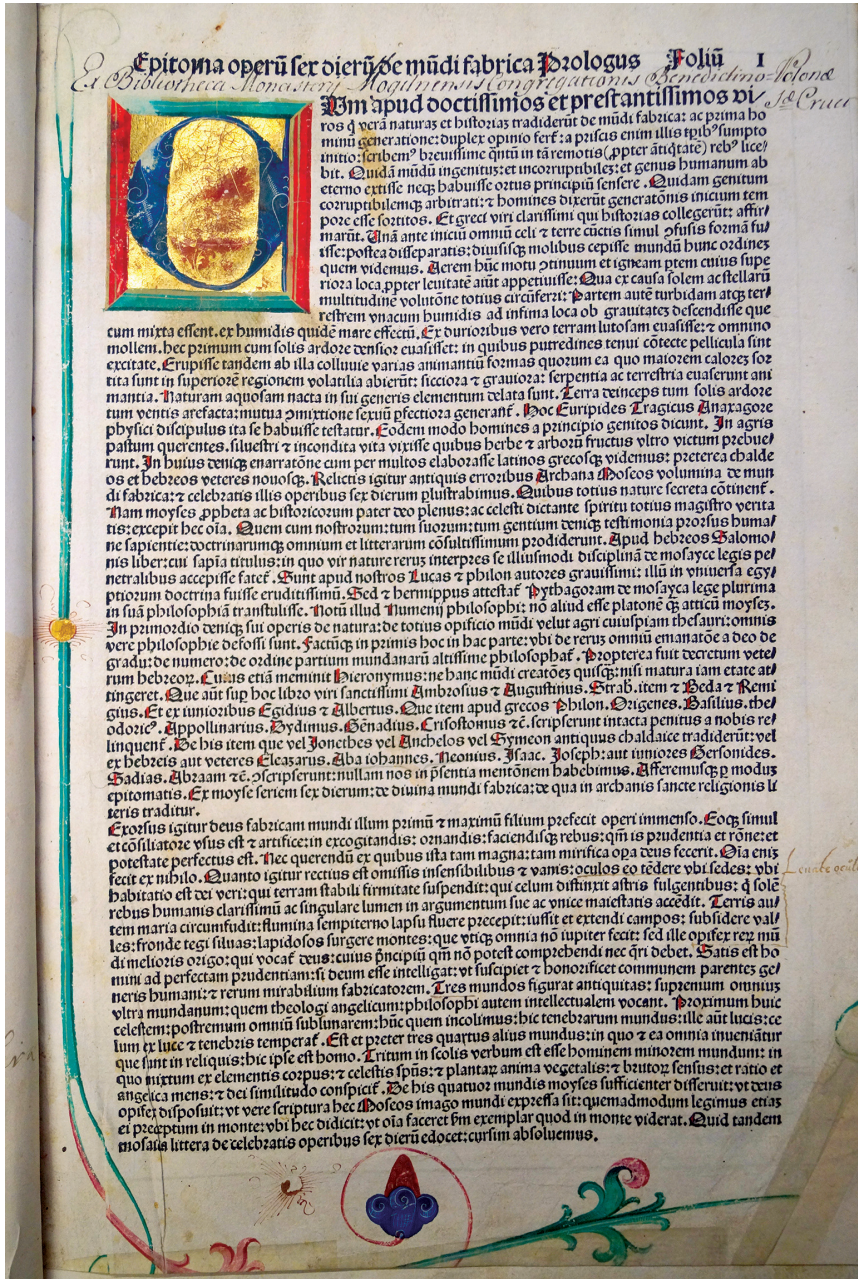 Epitoma operū sex dierū de mūdi fabrica Prologus Foliū I
Ex Bibliotheca Monasterij Mogilnensis Congregationis Benedictino=Polonæ
Sæ Cruci
CVm apud doctissimos et prestantissimos vi/
ros q̇ verā naturaꝫ et historiaꝫ tradiderūt de mūdi fabrica: ac prima ho
minū generatione: duplex opinio fert̄: a priscis enim illis tꝑibꝰ sumpto
initio: scribemꝰ breuissime q̄ntū in tā remotis (ꝓpter ātiq̇tatē) rebꝰ lice/
bit. Quidā mūdū ingenituꝫ: et incorruptibileꝫ: et genus humanum ab
eterno extisse neqꝫ habuisse ortus principiū sensere. Quidam genitum
corruptibilemqꝫ arbitrati: ⁊ homines dixerūt generatōnis inicium tem
pore esse sortitos. Et greci viri clarissimi qui historias collegerūt: affir/
marūt. Unā ante iniciū omniū celi ⁊ terre cūctis simul ꝯfusis formā fu/
isse: postea disseparatis: diuisisqꝫ molibus cepisse mundū hunc ordineꝫ
quem videmus. Aerem hūc motu ꝯtinuum et igneam ꝑtem cuius supe
riora loca ꝓpter leuitatē aiūt appetiuisse: Qua ex causa solem ac stellarū
multitudinē volutōne totius circūferri: Partem autē turbidam atqꝫ ter/
restrem vnacum humidis ad infima loca ob grauitateꝫ descendisse que
cum mixta essent. ex humidis quidē mare effectū. Ex durioribus vero terram lutosam euasisse: ⁊ omnino
mollem. hec primum cum solis ardore densior euasisset: in quibus putredines tenui cōtecte pellicula sint
excitate. Erupisse tandem ab illa colluuie varias animantiū formas quorum ea quo maiorem caloreꝫ sor
tita sunt in superiorē regionem volatilia abierūt: sicciora ⁊ grauiora: serpentia ac terrestria euaserunt ani
mantia. Naturam aquosam nacta in sui generis elementum delata sunt. Terra deinceps tum solis ardore
tum ventis arefacta: mutua ꝯmixtione sexuū ꝑfectiora generant̄. Hoc Euripides Tragicus Anaxagore
physici discipulus ita se habuisse testatur. Eodem modo homines a principio genitos dicunt. In agris
pastum querentes. siluestri ⁊ incondita vita vixisse quibus herbe ⁊ arborū fructus vltro victum prebue/
runt. In huius deniqꝫ enarratōne cum per multos elaborasse latinos grecosqꝫ videmus: preterea chalde
os et hebreos veteres nouosqꝫ. Relictis igitur antiquis erroribus Archana Moseos volumina de mun
di fabrica: ⁊ celebratis illis operibus sex dierum ꝑlustrabimus. Quibus totius nature secreta cōtinent̄.
Nam moyses ꝓpheta ac historicorum pater deo plenus: ac celesti dictante spiritu totius magistro verita
tis: excepit hec oīa. Quem cum nostrorum: tum suorum: tum gentium deniqꝫ testimonia prorsus huma/
ne sapientie: doctrinarumqꝫ omnium et litterarum cōsultissimum prodiderunt. Apud hebreos Salomo/
nis liber: cui sapīa titulus: in quo vir nature reruꝫ interpres se illiusmodi disciplinā de mosayce legis pe/
netralibus accepisse fatet̄. Sunt apud nostros Lucas ⁊ philon autores grauissimi: illū in vniuersa egy/
ptiorum doctrina fuisse eruditissimū. Sed ⁊ hermippus attestat̄ Pythagoram de mosayca lege plurima
in suā philosophiā transtulisse. Notū illud Numenij philosophi: nō aliud esse platonē q̄ꝫ atticū moyseꝫ.
In primordio deniqꝫ sui operis de natura: de totius opificio mūdi velut agri cuiuspiam thesauri: omnis
vere philosophie defossi sunt. Factūqꝫ in primis hoc in hac parte: vbi de rerus omniū emanatōe a deo de
gradu: de numero: de ordine partium mundanarū altissime philosophat̄. Propterea fuit decretum vete/
rum hebreoꝝ. Cuius etiā meminit Hieronymus: ne hanc mūdi creatōeꝫ quisqꝫ: nisi matura iam etate at/
tingeret. Que aūt suꝑ hoc libro viri sanctissimi Ambrosius ⁊ Augustinus. Strab. item ⁊ Beda ⁊ Remi
gius. Et ex iunioribus Egidius ⁊ Albertus. Que item apud grecos Philon. Origenes. Basilius. the/
odoricꝰ. Appollinarius. Dydimus. Gēnadius. Crisostomus ⁊c̄. scripserunt intacta penitus a nobis re/
linquent̄. De his item que vel Jonethes vel Anchelos vel Symeon antiquus chaldaice tradiderūt: vel
ex hebreis aut veteres Eleazarus. Aba iohannes. Neonius. Isaac. Joseph: aut iuniores Gersonides.
Sadias. Abraam ⁊c̄. ꝯscripserunt: nullam nos in p̄sentia mentōnem habebimus. Afferemusqꝫ ꝑ moduꝫ
epitomatis. Ex moyse seriem sex dierum: de diuina mundi fabrica: de qua in archanis sancte religionis li
teris traditur.
Exorsus igitur deus fabricam mundi illum primū ⁊ maximū filium prefecit operi immenso. Eoqꝫ simul
et cōsiliatore vsus est ⁊ artifice: in excogitandis: ornandis: faciendisqꝫ rebus: qm̄ is prudentia et rōne: et
potestate perfectus est. Nec querendū ex quibus ista tam magna: tam mirifica oꝑa deus fecerit. Oīa eniꝫ
fecit ex nihilo. Quanto igitur rectius est omissis insensibilibus ⁊ vanis: oculos eo tēdere vbi sedes: vbi
habitatio est dei veri: qui terram stabili firmitate suspendit: qui celum distinxit astris fulgentibus: q̇ solē
rebus humanis clarissimū ac singulare lumen in argumentum sue ac vnice maiestatis accēdit. Terris au/
tem maria circumfudit: flumina sempiterno lapsu fluere precepit: iussit et extendi campos: subsidere val/
les: fronde tegi siluas: lapidosos surgere montes: que vtiqꝫ omnia nō iupiter fecit: sed ille opifex reꝝ mū
di melioris origo: qui vocat̄ deus: cuius p̄ncipiū qm̄ nō potest comprehendi nec q̄ri debet. Satis est ho
mini ad perfectam prudentiam: si deum esse intelligat: vt suscipiet ⁊ honorificet communem parenteꝫ ge/
neris humani: ⁊ rerum mirabilium fabricatorem. Tres mundos figurat antiquitas: supremum omniuꝫ
vltra mundanum: quem theologi angelicum: philosophi autem intellectualem vocant. Proximum huic
celestem: postremum omniū sublunarem: hūc quem incolimus: hic tenebrarum mundus: ille aūt lucis: ce
lum ex luce ⁊ tenebris temperat̄. Est et preter tres quartus alius mundus: in quo ⁊ ea omnia inueniātur
que sunt in reliquis: hic ipse est homo. Tritum in scolis verbum est esse hominem minorem mundum: in
quo mixtum ex elementis corpus: ⁊ celestis spūs: ⁊ plantaꝝ anima vegetalis: ⁊ brutoꝝ sensus: et ratio et
angelica mens: ⁊ dei similitudo conspicit̄. De his quatuor mundis moyses sufficienter disseruit: vt deus
opifex disposuit: vt vere scriptura hec Moseos imago mundi expressa sit: quemadmodum legimus etiaꝫ
ei preceptum in monte: vbi hec didicit: vt oīa faceret ẜm exemplar quod in monte viderat. Quid tandem
mosaiis littera de celebratis operibus sex dierū edocet: cursim absoluemus.